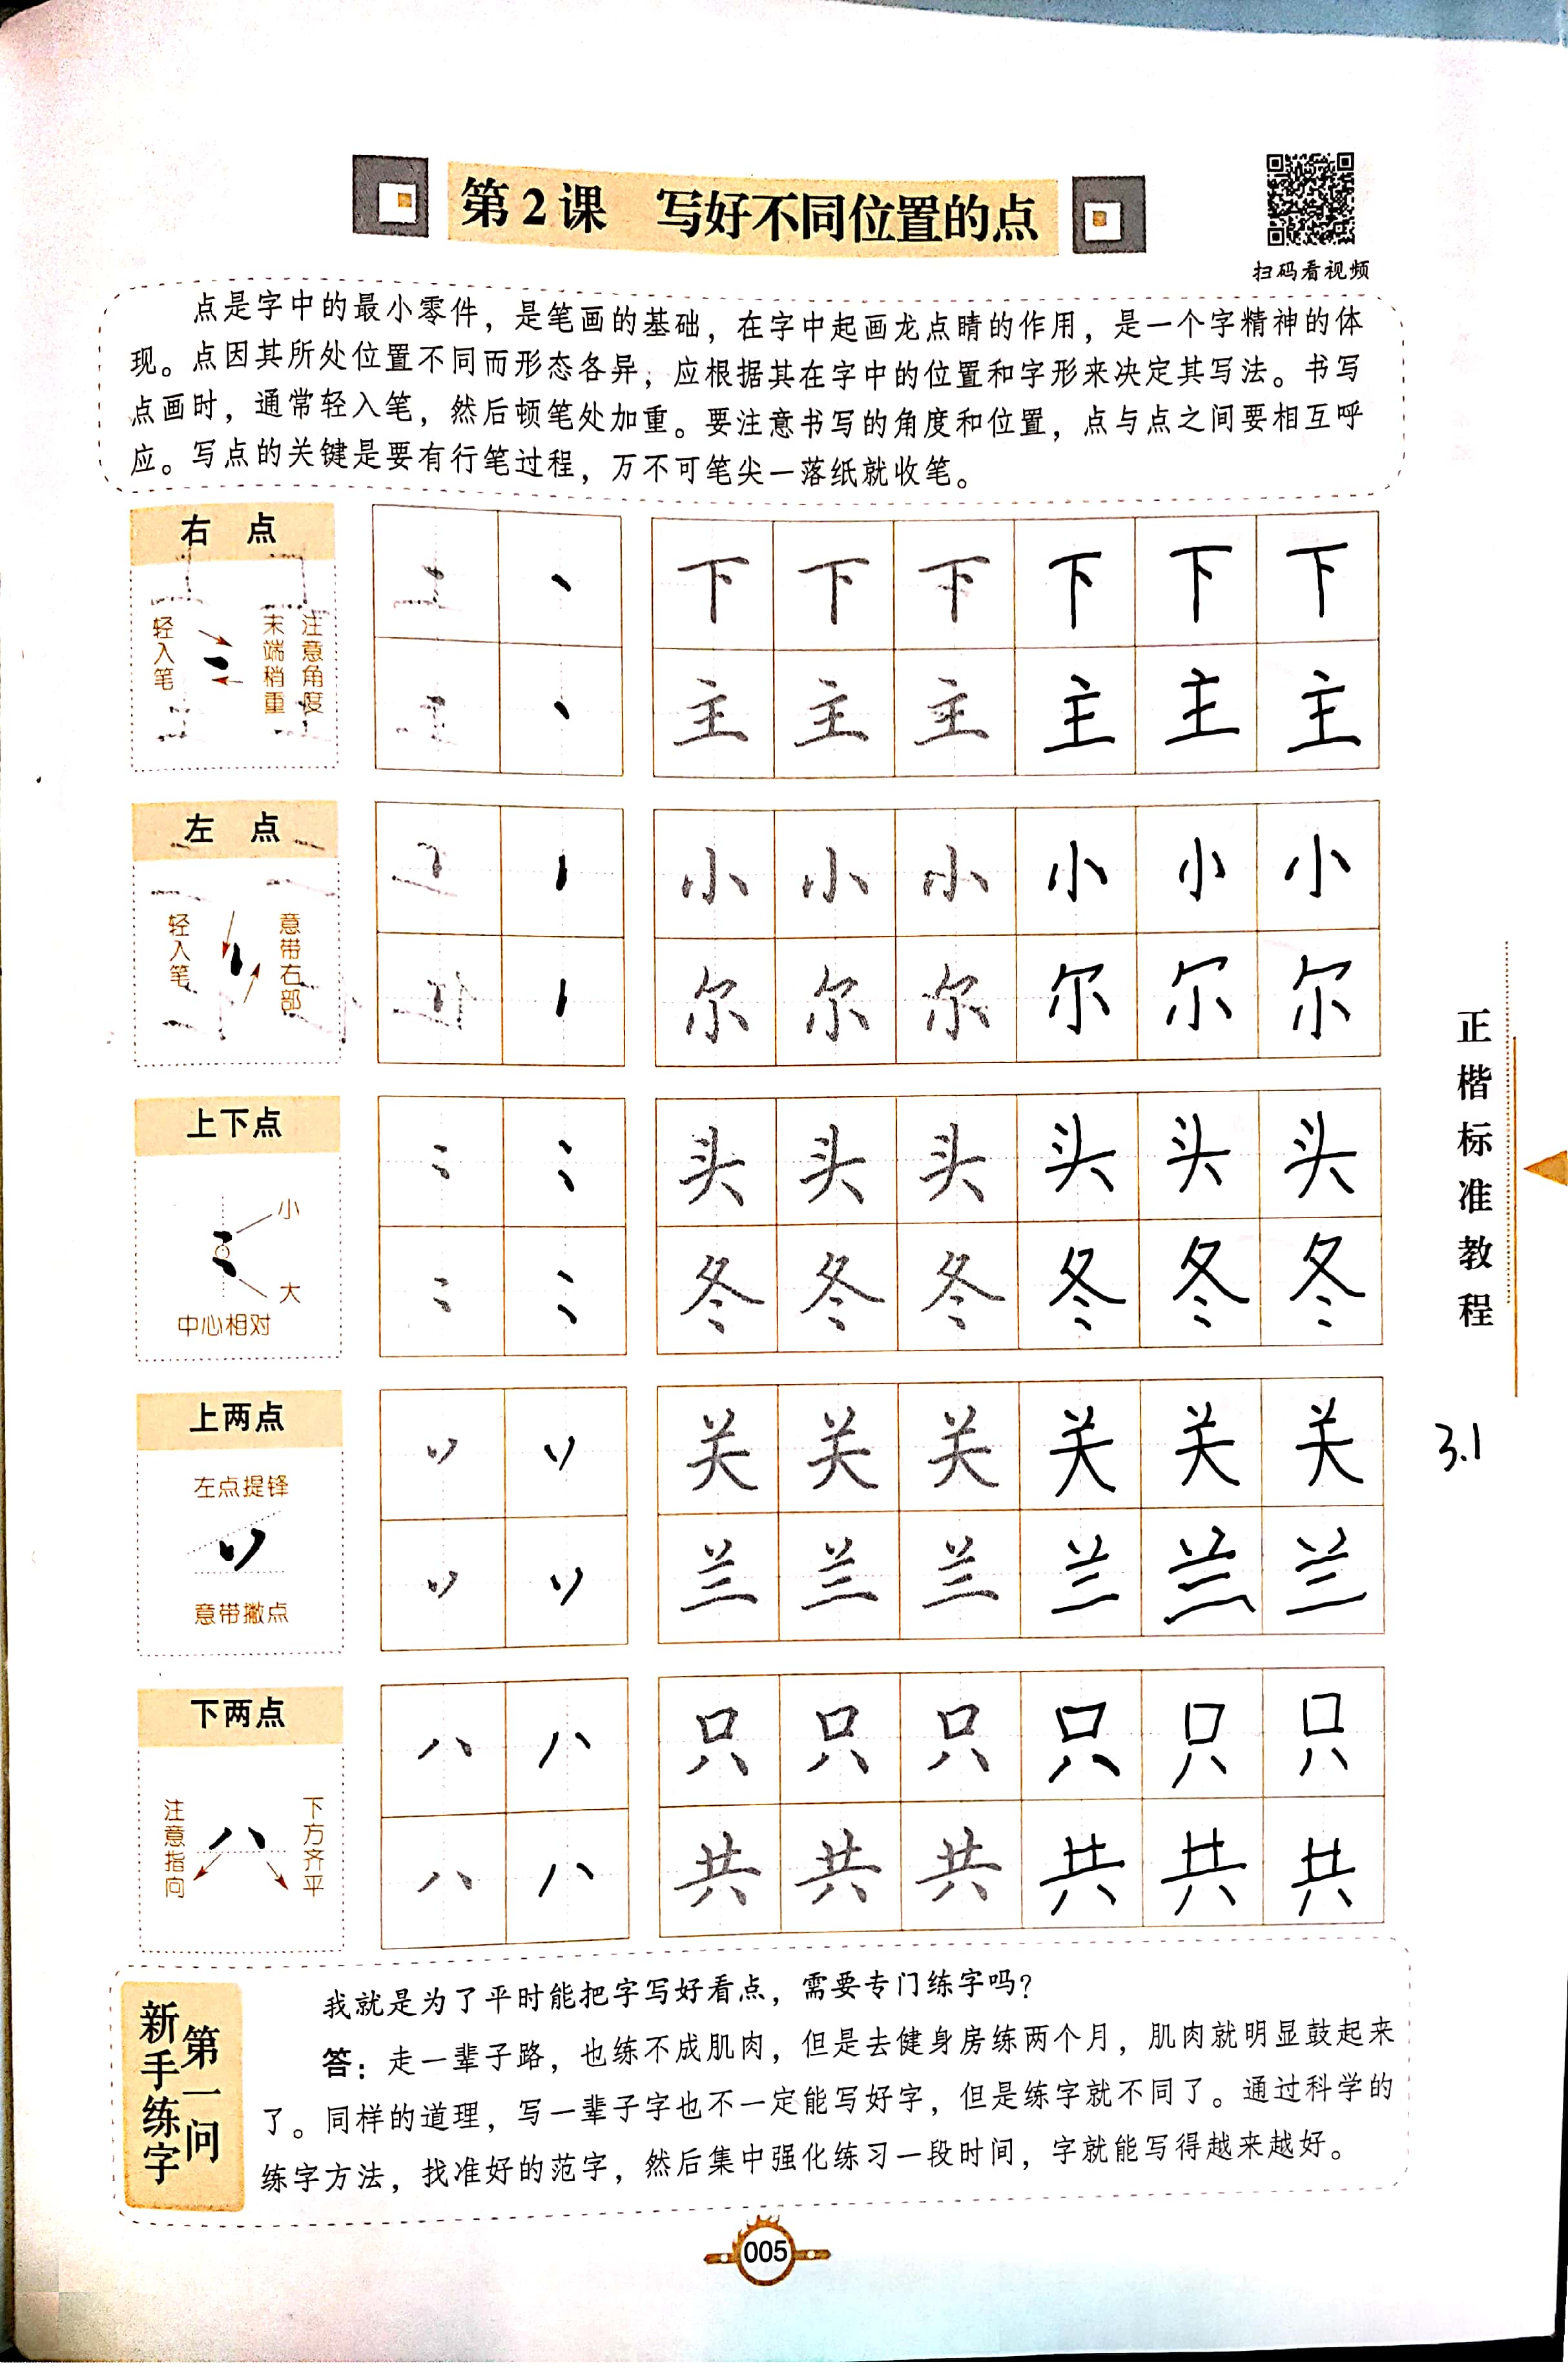 第2课 写好不同位置的点
扫码看视频
点是字中的最小零件，是笔画的基础，在字中起画龙点睛的作用，是一个字精神的体
现。点因其所处位置不同而形态各异，应根据其在字中的位置和字形来决定其写法。书写
点画时，通常轻入笔，然后顿笔处加重。要注意书写的角度和位置，点与点之间要相互呼
应。写点的关键是要有行笔过程，万不可笔尖一落纸就收笔。
右点
轻入笔
末端稍重
注意角度
丶
丶
下下下下下下
主主主主主主
左点
轻入笔
意带右部
小小小小小小
尔尔尔尔尔尔
上下点
小
大
中心相对
头头头头头头
冬冬冬冬冬冬
上两点
左点提锋
意带撇点
关关关关关关
兰兰兰兰兰兰
下两点
注意指向
下方齐平
只只只只只只
共共共共共共
正楷标准教程
3.1
新手练字
第一问
我就是为了平时能把字写好看点，需要专门练字吗？
答：走一辈子路，也练不成肌肉，但是去健身房练两个月，肌肉就明显鼓起来
了。同样的道理，写一辈子字也不一定能写好字，但是练字就不同了。通过科学的
练字方法，找准好的范字，然后集中强化练习一段时间，字就能写得越来越好。
005